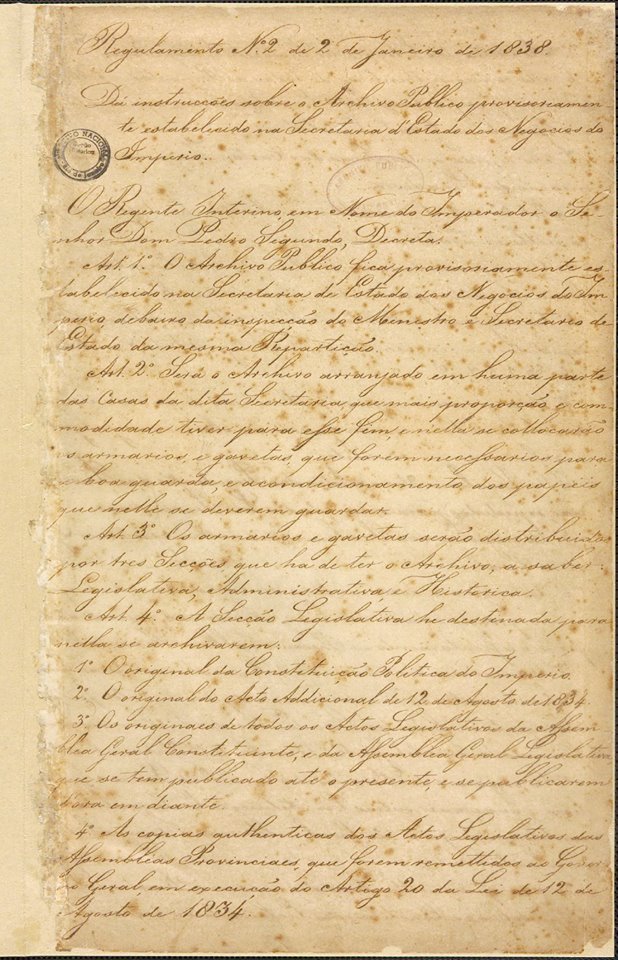 Regulamento N.º 2 de 2 de Janeiro de 1838.
Dá instrucções sobre o Archivo Publico provisoriamen
te estabelecido na Secretaria d'Estado dos Negocios do
Imperio.
O Regente Interino, em Nome do Imperador o Se-
nhor Dom Pedro Segundo, Decreta:
Art. 1.º O Archivo Publico fica provisoriamente es-
tabelecido na Secretaria de Estado dos Negocios do Im
perio, debaixo da inspecção do Ministro e Secretario de
Estado da mesma Repartição.
Art. 2.º Será o Archivo arranjado em huma parte
das Casas da dita Secretaria, que mais proporção e com
modidade tiver para esse fim, e nella se collocarão
os armarios, e gavetas, que forem necessarios para
a boa guarda, e acondicionamento, dos papeis
que nelle se deverem guardar.
Art. 3.º Os armarios e gavetas serão distribuidos
por tres Secções que ha de ter o Archivo, a saber:
Legislativa, Administrativa e Historica.
Art. 4.º A Secção Legislativa he destinada para
nella se archivarem:
1.º O original da Constituição Politica do Imperio.
2.º O original do Acto Addicional de 12 de Agosto de 1834.
3.º Os originaes de todos os Actos Legislativos da Assem
blea Geral Constituinte, e da Assemblea Geral Legislativa
que se tem publicado até o presente, e se publicarem
para em diante.
4.º As copias authenticas dos Actos Legislativos das
Assembleas Provinciaes, que forem remettidos ao Gover
no Geral em execução do Artogo 20 da Lei de 12 de
Agosto de 1834.